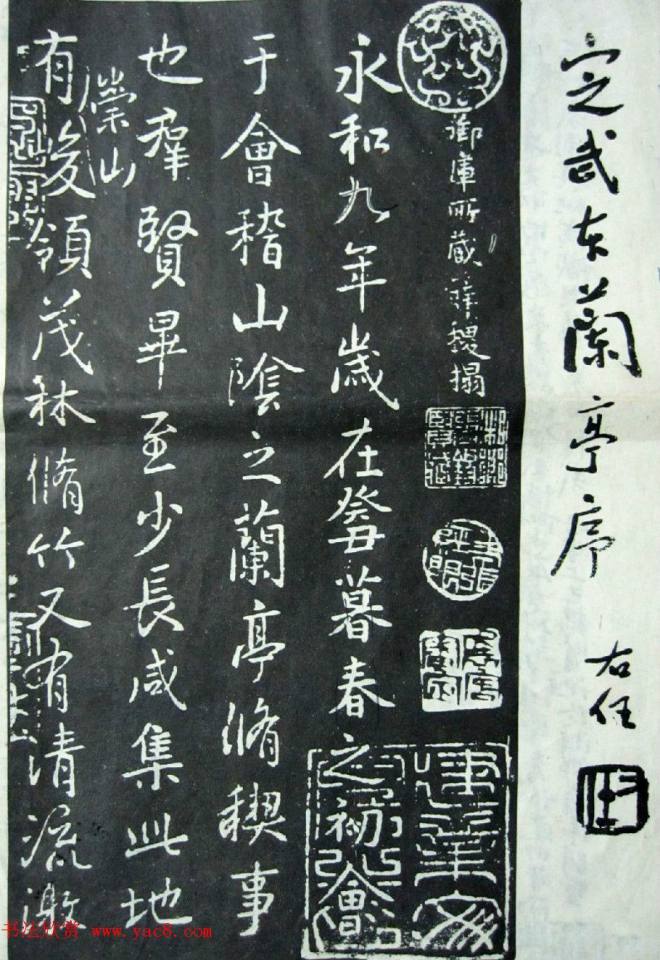 定武本蘭亭序
右任
御庫所藏薛稷搨
永和九年歲在癸丑暮春之初會
于會稽山陰之蘭亭脩稧事
也羣賢畢至少長咸集此地
崇山
有峻領茂林脩竹又有清流激
书法欣赏 www.yac8.com